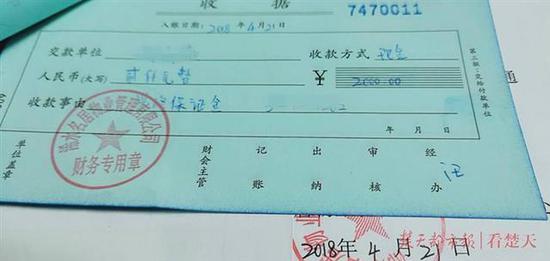 收 据
7470011
入账日期:2018年4月21日
交款单位 收款方式 现金
人民币(大写) 贰仟元整 ¥ 2000.00
收款事由 保证金
年 月 日
物业管理有限公司
财务专用章
单位盖章 财会主管 记账 出纳 审核 经办 汪
第三联:交给付款单位
通
楚天都市报 | 看楚天
2018年4月21日